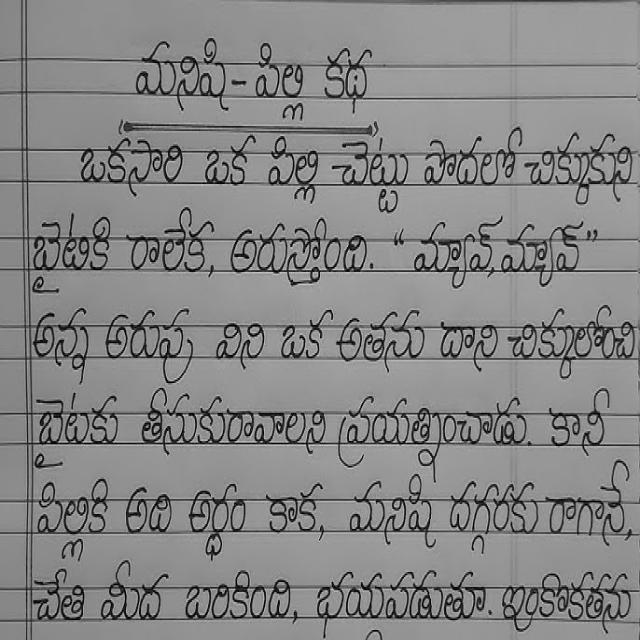 మనిషి - పిల్లి కథ
ఒకసారి ఒక పిల్లి చెట్టు పొదలో చిక్కుకుని
బైటికి రాలేక, అరుస్తోంది. “ మ్యావ్, మ్యావ్”
అన్న అరుపు విని ఒక అతను దాని చిక్కులోంచి
బైటకు తీసుకురావాలని ప్రయత్నించాడు. కానీ
పిల్లికి అది అర్థం కాక, మనిషి దగ్గరకు రాగానే,
చేతి మీద బరికింది, భయపడుతూ. ఇంకొకతను